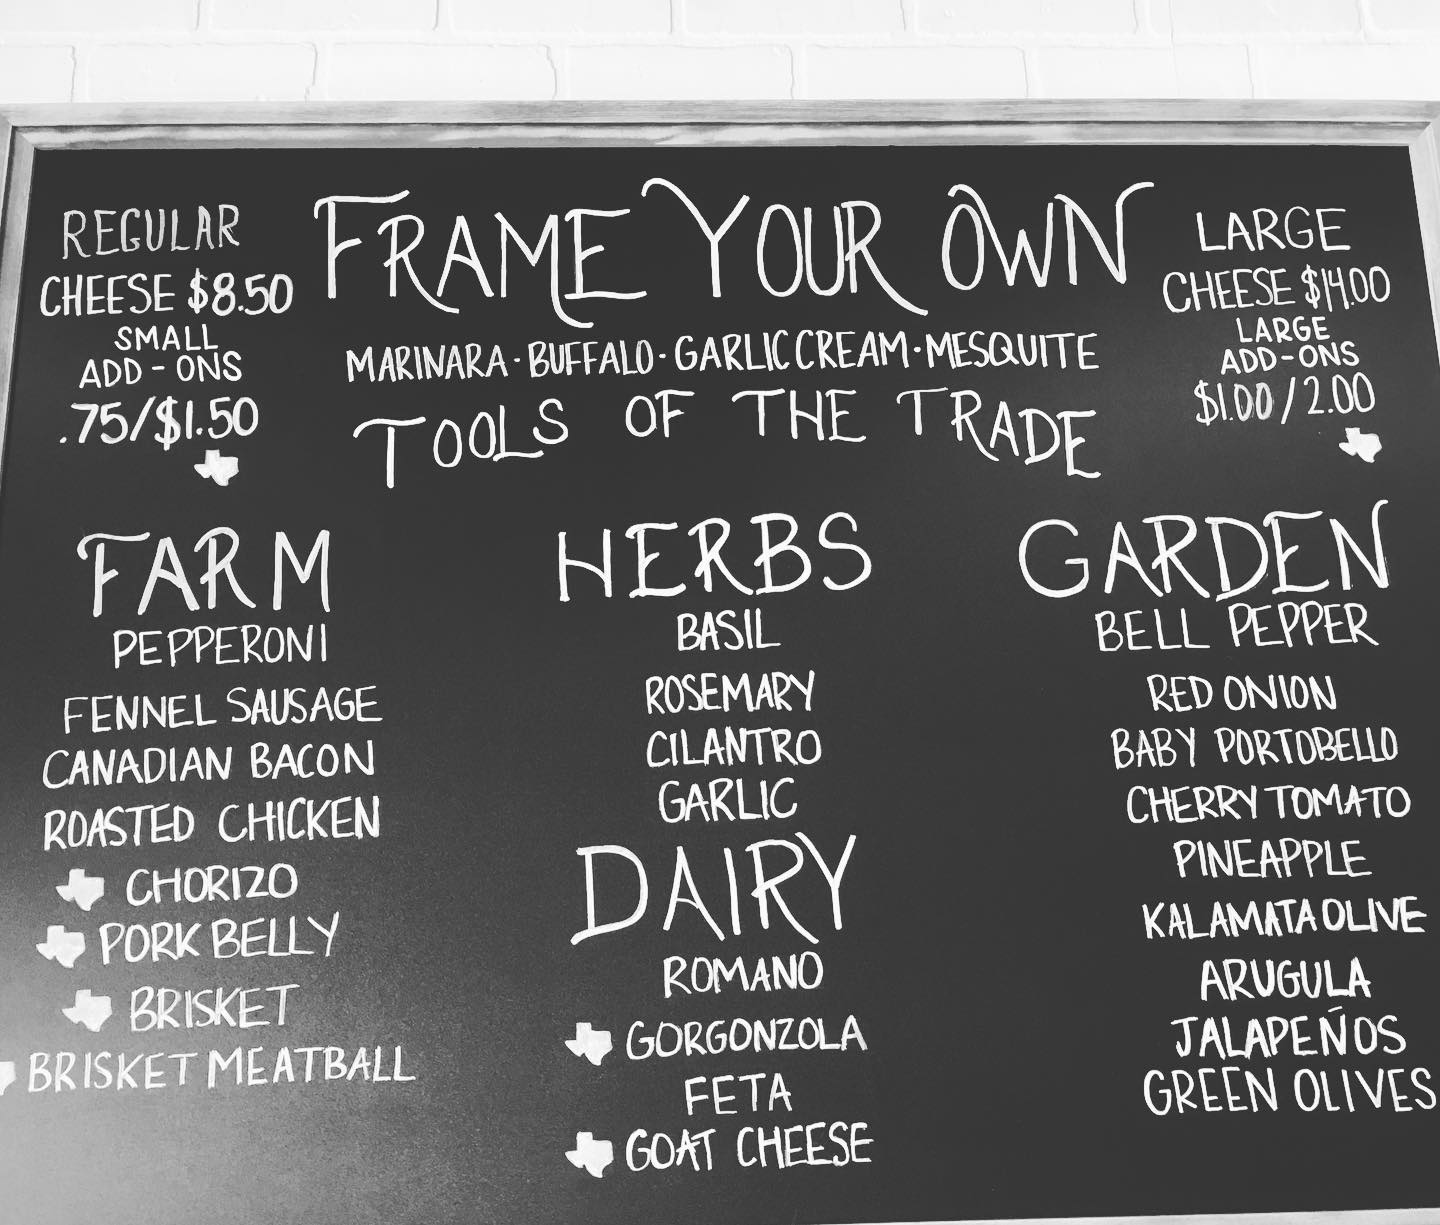 FRAME YOUR OWN
REGULAR
CHEESE $8.50
SMALL
ADD-ONS
.75/$1.50
MARINARA · BUFFALO · GARLIC CREAM · MESQUITE
TOOLS OF THE TRADE
LARGE
CHEESE $14.00
LARGE
ADD-ONS
$1.00/2.00
FARM
PEPPERONI
FENNEL SAUSAGE
CANADIAN BACON
ROASTED CHICKEN
CHORIZO
PORK BELLY
BRISKET
BRISKET MEATBALL
HERBS
BASIL
ROSEMARY
CILANTRO
GARLIC
DAIRY
ROMANO
GORGONZOLA
FETA
GOAT CHEESE
GARDEN
BELL PEPPER
RED ONION
BABY PORTOBELLO
CHERRY TOMATO
PINEAPPLE
KALAMATA OLIVE
ARUGULA
JALAPEÑOS
GREEN OLIVES